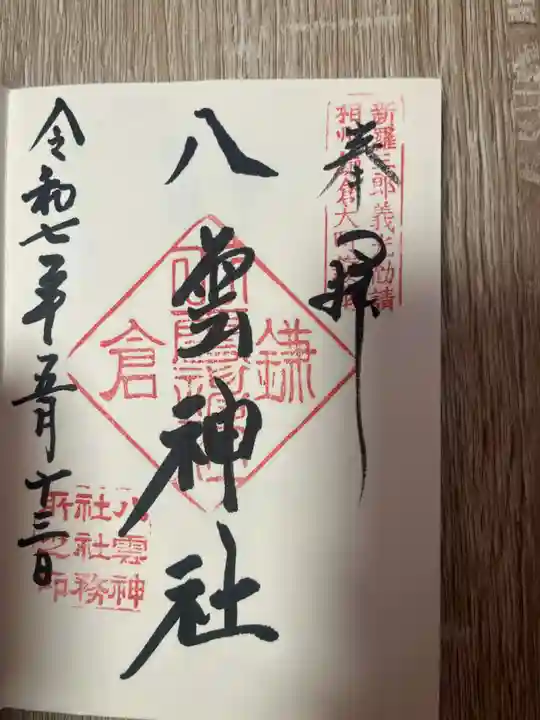 奉拝
新羅三郎義光勧請
相州鎌倉大町
八雲神社
鎌倉
令和七年五月十三日
八雲神
社社務
所之印